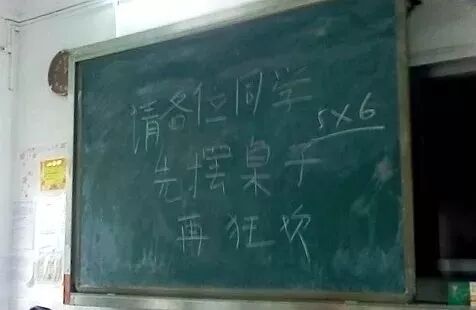 请各位同学
5×6
先摆桌子
再狂欢